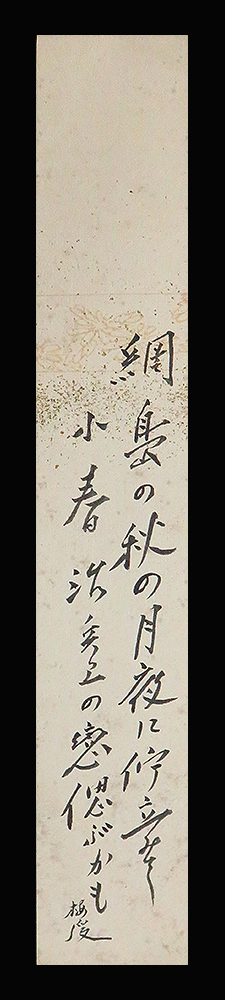 網島の秋の月夜に佇立みて
小春治兵ヱの戀偲ぶかも
梅